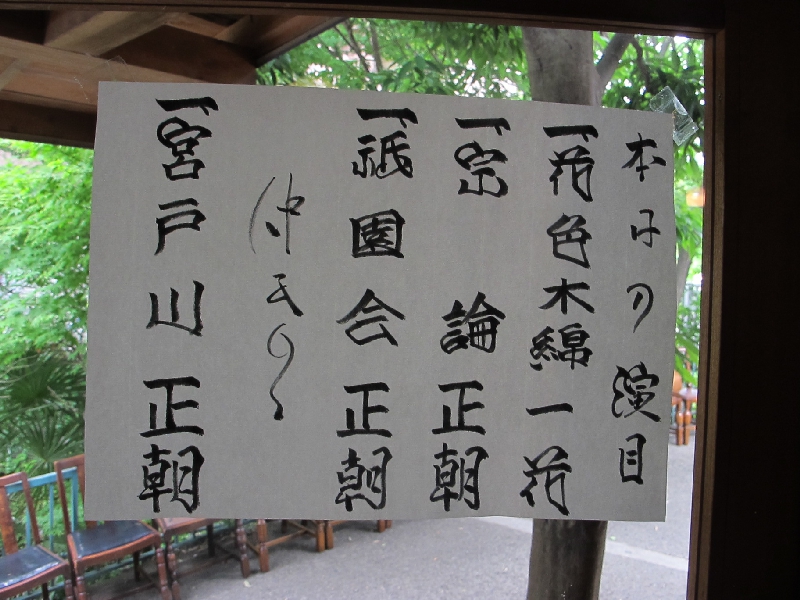 本日の演目
一、花色木綿 一荷
一、宗論 正朝
一、祇園会 正朝
仲入り
一、宮戸川 正朝